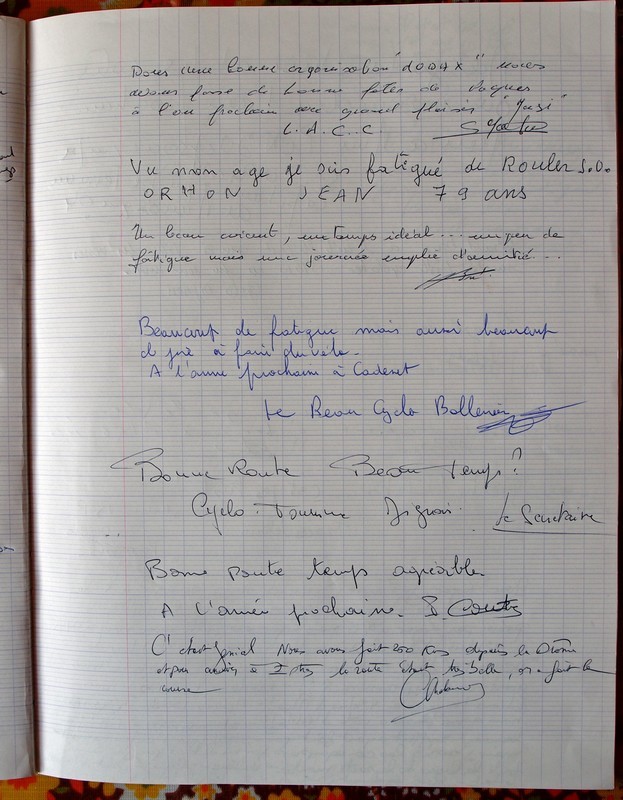 Dans une bonne organisation "DODAX" nous
avons passé de bonne fêtes de Paques
à l'an prochain avec grand plaisir
L.A.C.C.
Vu mon age je suis fatigué de Rouler S.O.
ORHON JEAN 79 ans
Un beau circuit, un temps idéal... un peu de
fatigue mais une journée emplie d'amitié...
Beaucoup de fatigue mais aussi beaucoup
de joie à faire du vélo.
A l'année prochaine à Cadenet
Le Beau Cyclo Bollenois
Bonne Route Beau temps?
Cyclo. Tourisme le Secrétaire
Bonne route temps agréable
A l'année prochaine.
C'était génial Nous avons fait 200 Kms depuis la Drôme
la route était très belle, on a fait la
course